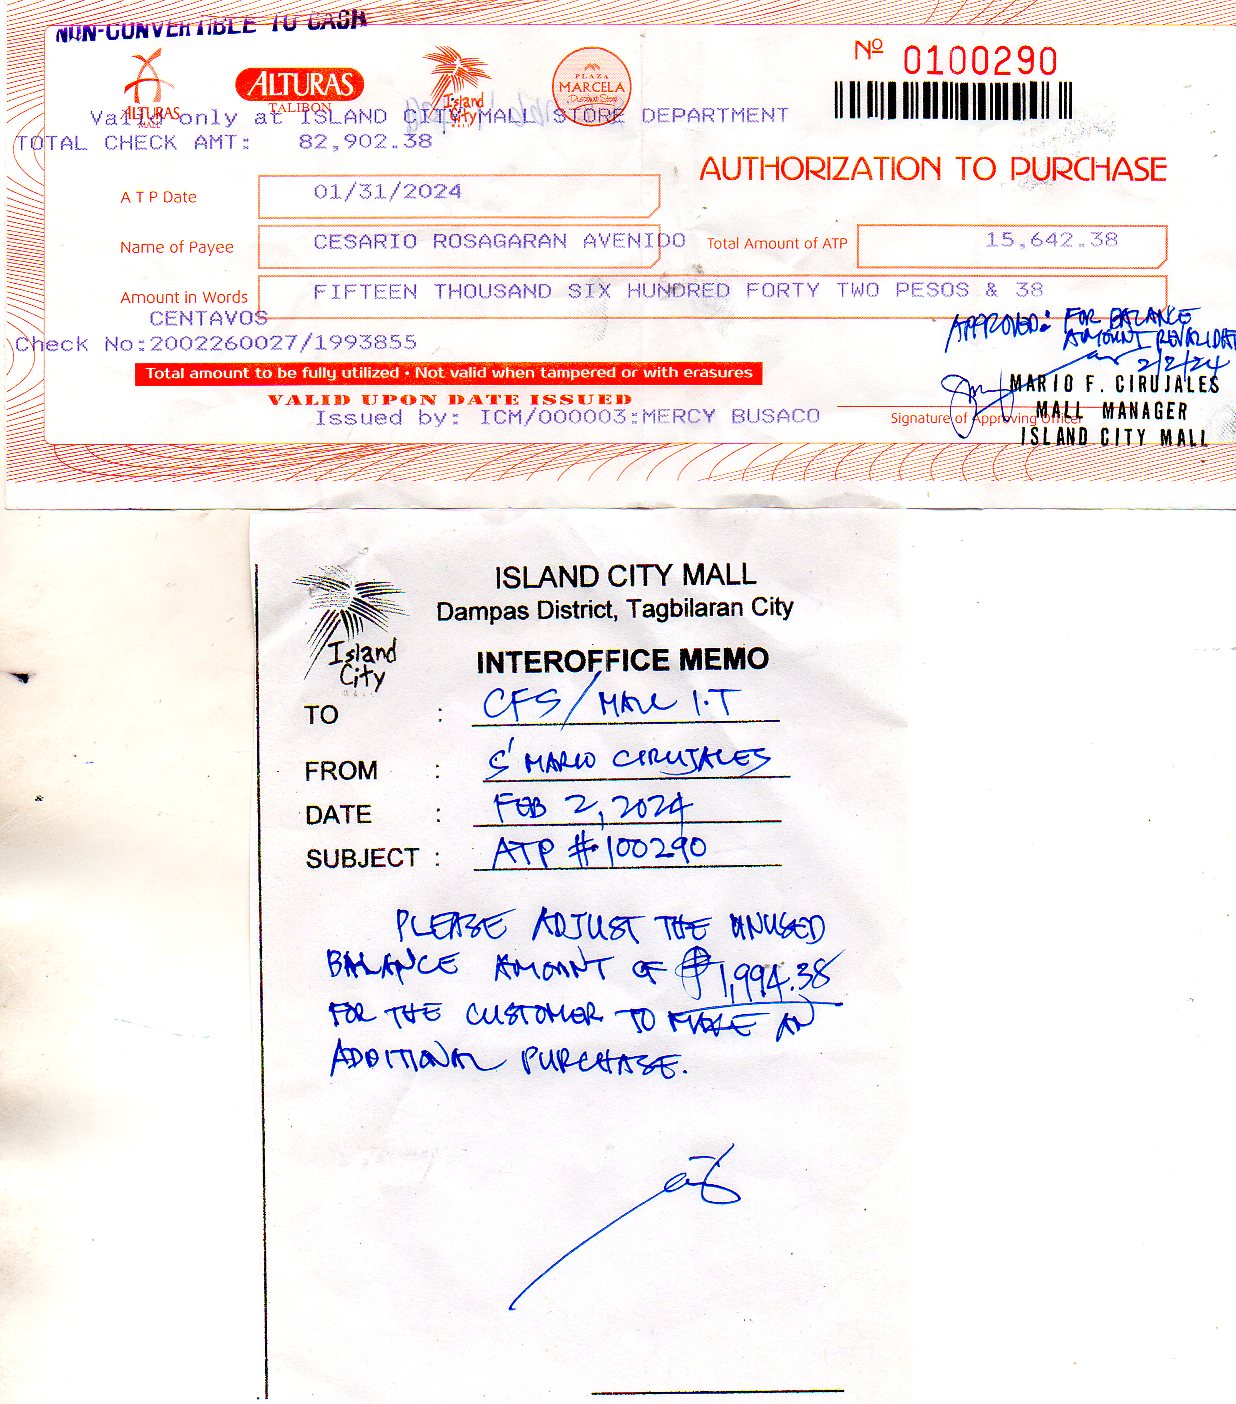 NON-CONVERTIBLE TO CASH
ALTURAS
MALL
ALTURAS
TALIBON
Island
City
MALL
PLAZA
MARCELA
Discount Store
Nº 0100290
Valid only at ISLAND CITY MALL STORE DEPARTMENT
TOTAL CHECK AMT: 82,902.38
AUTHORIZATION TO PURCHASE
A T P Date 01/31/2024
Name of Payee CESARIO ROSAGARAN AVENIDO Total Amount of ATP 15,642.38
Amount in Words FIFTEEN THOUSAND SIX HUNDRED FORTY TWO PESOS & 38
CENTAVOS
APPROVED: FOR BALANCE
AMOUNT REVALIDAT
Check No:2002260027/1993855
2/2/24
Total amount to be fully utilized • Not valid when tampered or with erasures
MARIO F. CIRUJALES
VALID UPON DATE ISSUED
MALL MANAGER
Issued by: ICM/000003:MERCY BUSACO
Signature of Approving Officer
ISLAND CITY MALL
Island
City
MALL
ISLAND CITY MALL
Dampas District, Tagbilaran City
INTEROFFICE MEMO
TO : CFS/MALL I.T
FROM : S' MARIO CIRUJALES
DATE : FEB 2, 2024
SUBJECT : ATP # 100290
PLEASE ADJUST THE UNUSED
BALANCE AMOUNT OF ₱1,994.38
FOR THE CUSTOMER TO MAKE AN
ADDITIONAL PURCHASE.